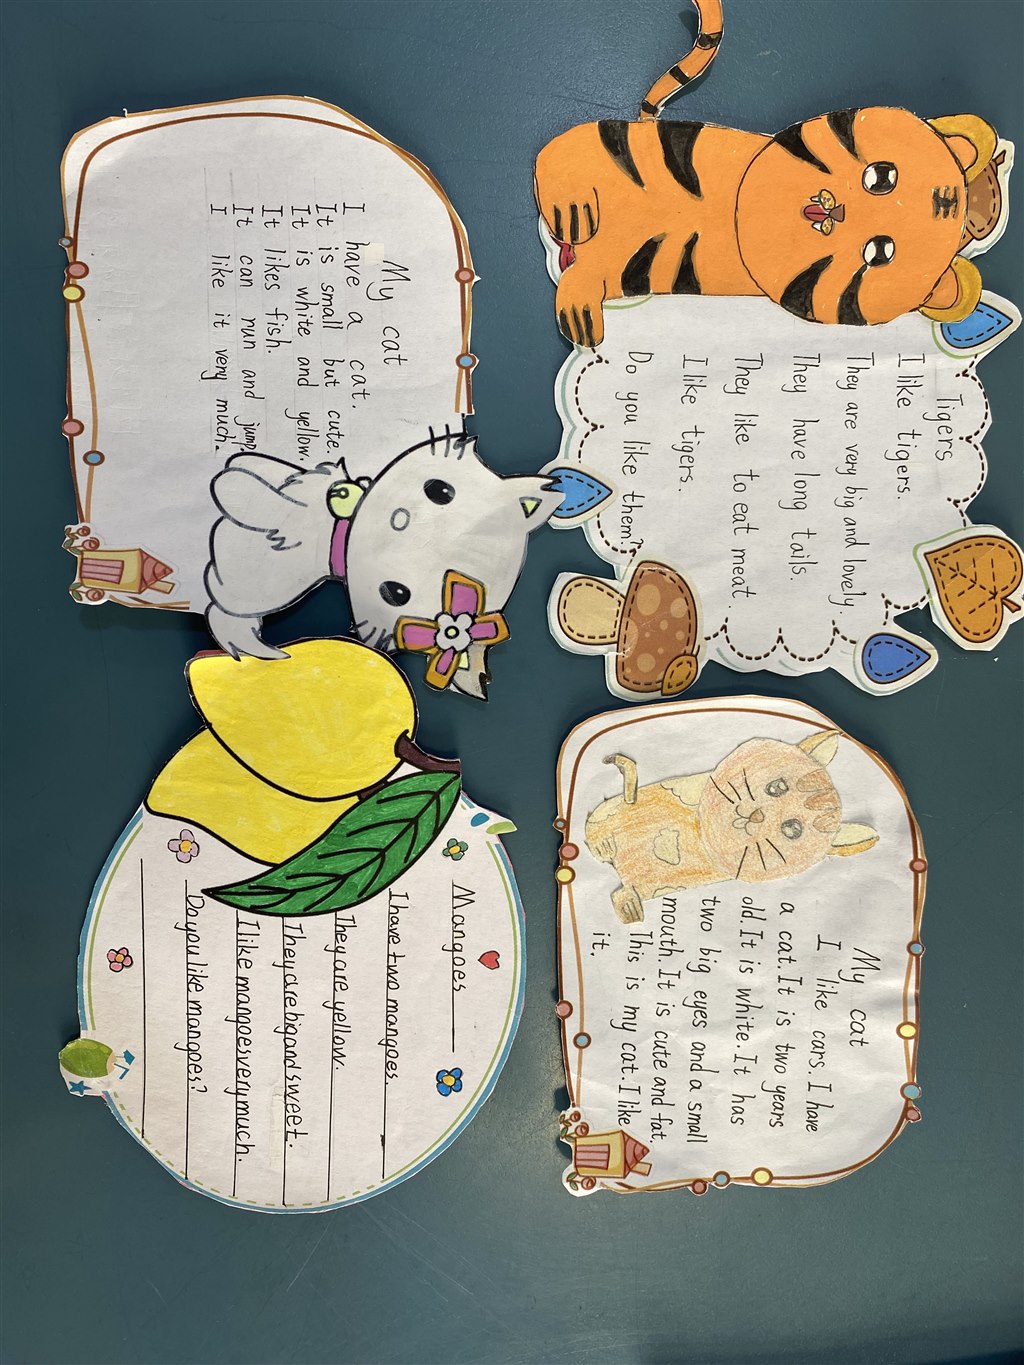 Tigers
I like tigers.
They are very big and lovely.
They have long tails.
They like to eat meat.
I like tigers.
Do you like them?
My cat
I like cars. I have
a cat. It is two years
old. It is white. It has
two big eyes and a small
mouth. It is cute and fat.
This is my cat. I like
it.
My cat
I have a cat.
It is small but cute.
It is white and yellow.
It likes fish.
It can run and jump.
I like it very much.
Mangoes
I have two mangoes.
They are yellow.
They are big and sweet.
I like mangoes very much.
Do you like mangoes?